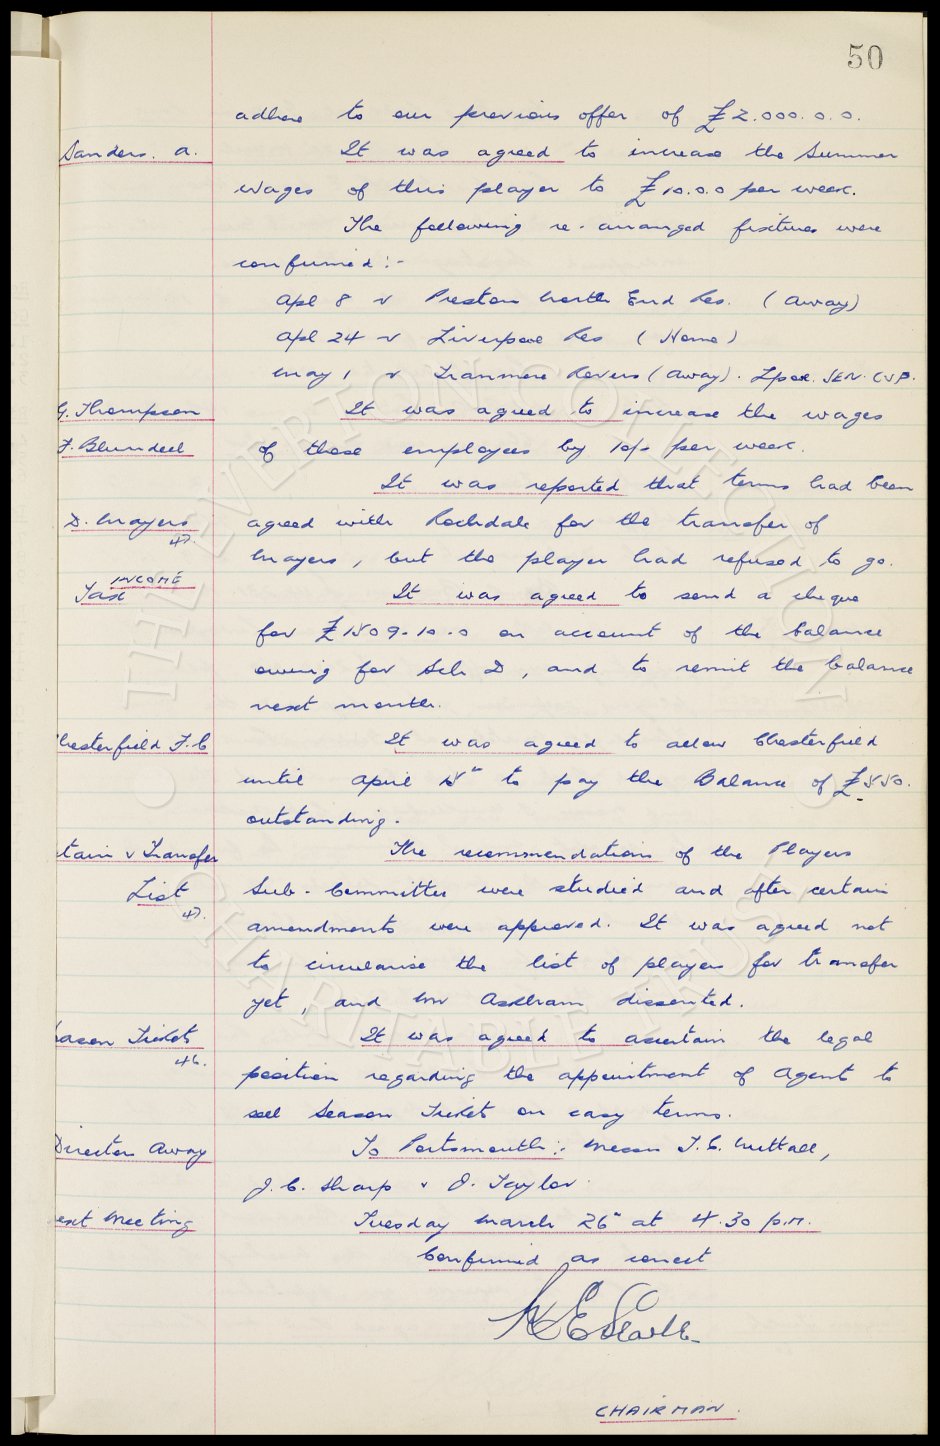 50
adhere to our previous offer of £2.000.0.0.
Sanders. A. It was agreed to increase the Summer
wages of this player to £10.0.0 per week.
The following re-arranged fixtures were
confirmed:-
Apl 8 v Preston North End Res. (Away)
Apl 24 v Liverpool Res (Home)
May 1 v Tranmere Rovers (Away). Lpool. SEN. CUP.
G. Thompson It was agreed to increase the wages
F. Blundell of these employees by 10/- per week.
It was reported that terms had been
D. Mayers agreed with Rochdale for the transfer of
47.
Mayers, but the player had refused to go.
INCOME
Tax It was agreed to send a cheque
for £1509-10-0 on account of the balance
owing for Sch D, and to remit the balance
next month.
hesterfield F.C It was agreed to allow Chesterfield
until April 15th to pay the Balance of £550.
outstanding.
tain v Transfer The recommendations of the Players
List Sub-Committee were studied and after certain
47.
amendments were approved. It was agreed not
to circularise the list of players for transfer
yet, and Mr Askham dissented.
eason Tickets It was agreed to ascertain the legal
46.
position regarding the appointment of Agent to
sell Season Tickets on easy terms.
Directors Away To Portsmouth:- Messrs T.C. Nuttall,
J.C. Sharp & J. Taylor.
ext Meeting Tuesday March 26th at 4.30 p.m.
Confirmed as correct
CHAIRMAN.
© THE EVERTON COLLECTION
CHARITABLE TRUST